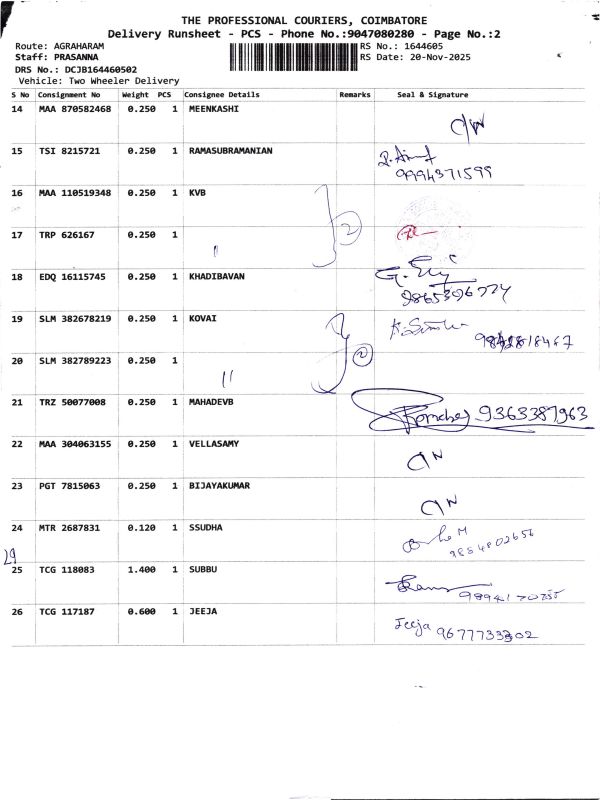 THE PROFESSIONAL COURIERS, COIMBATORE
Delivery Runsheet - PCS - Phone No.:9047080280 - Page No.:2
Route: AGRAHARAM RS No.: 1644605
Staff: PRASANNA RS Date: 20-Nov-2025
DRS No.: DCJB164460502
Vehicle: Two Wheeler Delivery
S No Consignment No Weight PCS Consignee Details Remarks Seal & Signature
14 MAA 870582468 0.250 1 MEENKASHI
15 TSI 8215721 0.250 1 RAMASUBRAMANIAN
9994371599
16 MAA 110519348 0.250 1 KVB
2
17 TRP 626167 0.250 1
"
18 EDQ 16115745 0.250 1 KHADIBAVAN
9865396774
19 SLM 382678219 0.250 1 KOVAI
20 SLM 382789223 0.250 1
"
21 TRZ 50077008 0.250 1 MAHADEVB 9363387963
22 MAA 304063155 0.250 1 VELLASAMY
23 PGT 7815063 0.250 1 BIJAYAKUMAR
24 MTR 2687831 0.120 1 SSUDHA
29
25 TCG 118083 1.400 1 SUBBU
26 TCG 117187 0.600 1 JEEJA Jeeja 9677733302